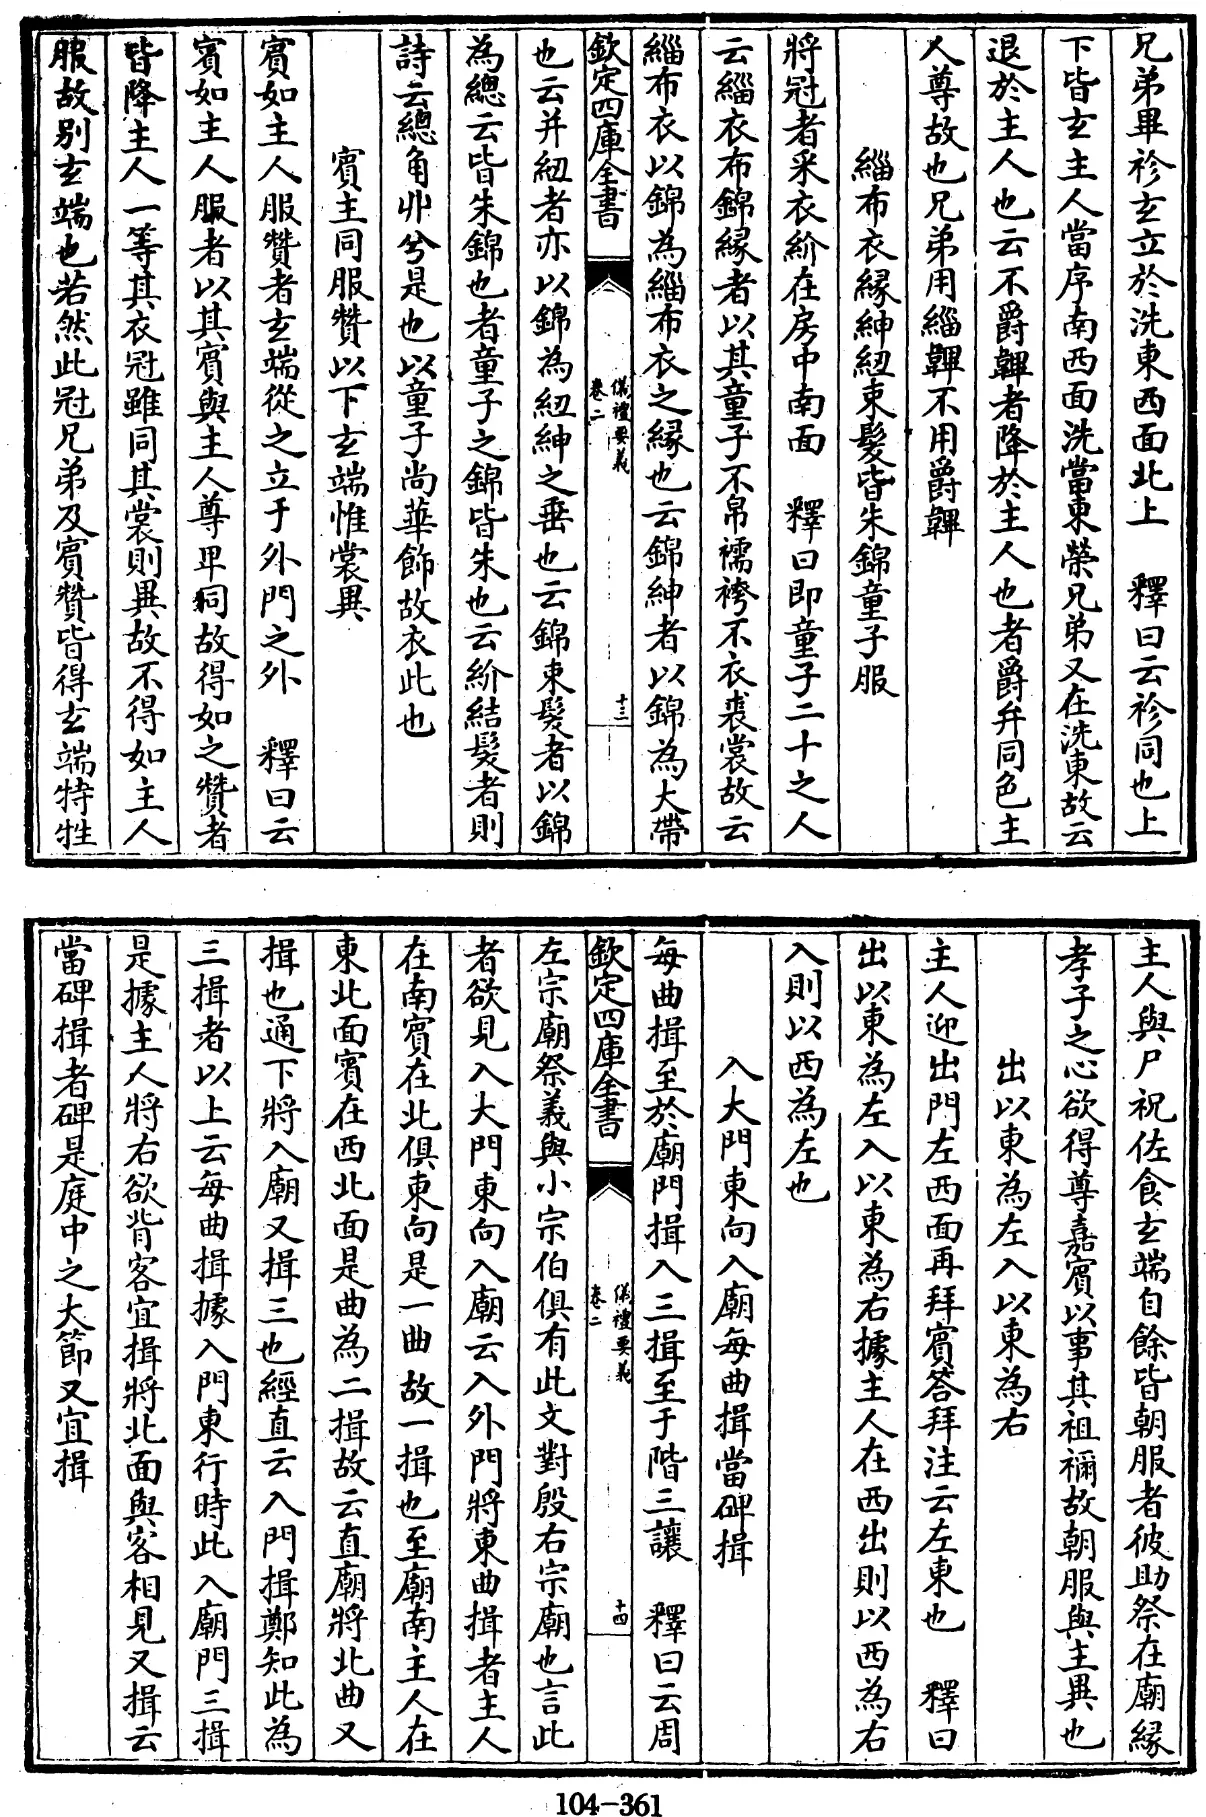 兄弟畢袗玄立於洗東西面北上　釋曰云袗同也上
下皆玄主人當序南西面洗當東榮兄弟又在洗東故云
退於主人也云不爵韠者降於主人也者爵弁同色主
人尊故也兄弟用緇韠不用爵韠
緇布衣緣紳紐束髮皆朱錦童子服
將冠者采衣紒在房中南面　釋曰即童子二十之人
云緇衣布錦緣者以其童子不帛襦袴不衣裘裳故云
緇布衣以錦為緇布衣之緣也云錦紳者以錦為大帶
欽定四庫全書
儀禮要義
卷二
十三
也云并紐者亦以錦為紐紳之垂也云錦束髮者以錦
為總云皆朱錦也者童子之錦皆朱也云紒結髮者則
詩云總角丱兮是也以童子尚華飾故衣此也
賓主同服贊以下玄端惟裳異
賓如主人服贊者玄端從之立于外門之外　釋曰云
賓如主人服者以其賓與主人尊卑同故得如之贊者
皆降主人一等其衣冠雖同其裳則異故不得如主人
服故别玄端也若然此冠兄弟及賓贊皆得玄端特牲
主人與尸祝佐食玄端自餘皆朝服者彼助祭在廟緣
孝子之心欲得尊嘉賓以事其祖禰故朝服與主異也
出以東為左入以東為右
主人迎出門左西面再拜賓答拜注云左東也　釋曰
出以東為左入以東為右據主人在西出則以西為右
入則以西為左也
入大門東向入廟每曲揖當碑揖
每曲揖至於廟門揖入三揖至于階三讓　釋曰云周
欽定四庫全書
儀禮要義
卷二
十四
左宗廟祭義與小宗伯俱有此文對殷右宗廟也言此
者欲見入大門東向入廟云入外門將東曲揖者主人
在南賓在北俱東向是一曲故一揖也至廟南主人在
東北面賓在西北面是曲為二揖故云直廟將北曲又
揖也通下將入廟又揖三也經直云入門揖鄭知此為
三揖者以上云每曲揖據入門東行時此入廟門三揖
是據主人將右欲背客宜揖將北面與客相見又揖云
當碑揖者碑是庭中之大節又宜揖
104-361